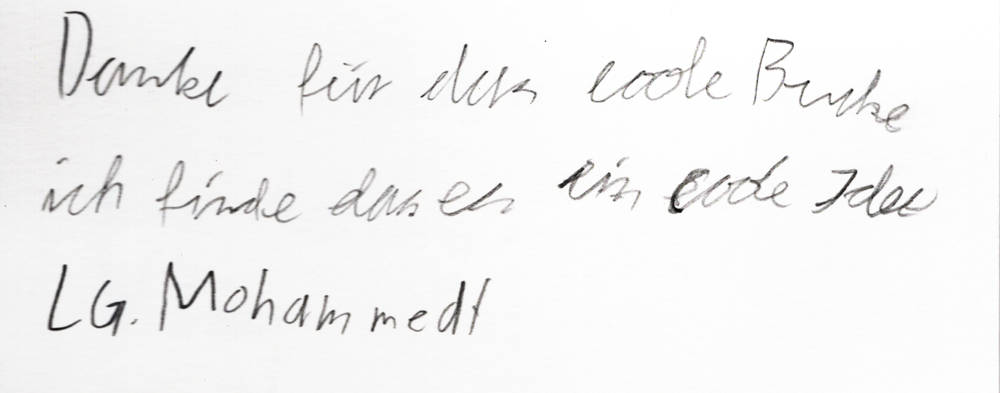 Danke für das coole Brucke
ich finde das es ein coole Idee
LG. Mohammedt